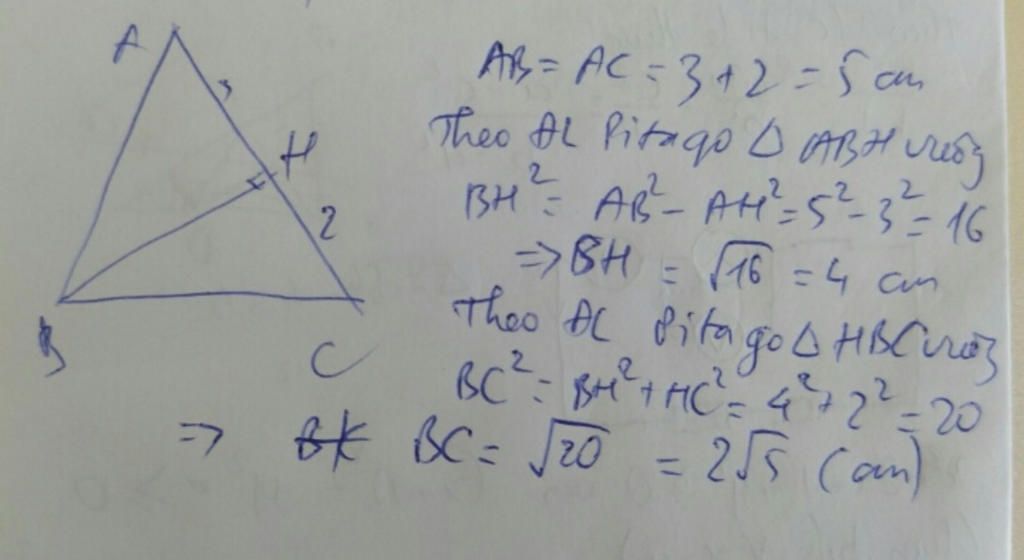 A
3
H
2
B
C
AB = AC = 3 + 2 = 5 cm
Theo ĐL Pitago Δ ABH vuông
BH² = AB² - AH² = 5² - 3² = 16
=> BH = √16 = 4 cm
Theo ĐL Pitago Δ HBC vuông
BC² = BH² + HC² = 4² + 2² = 20
=> BC = √20 = 2√5 (cm)